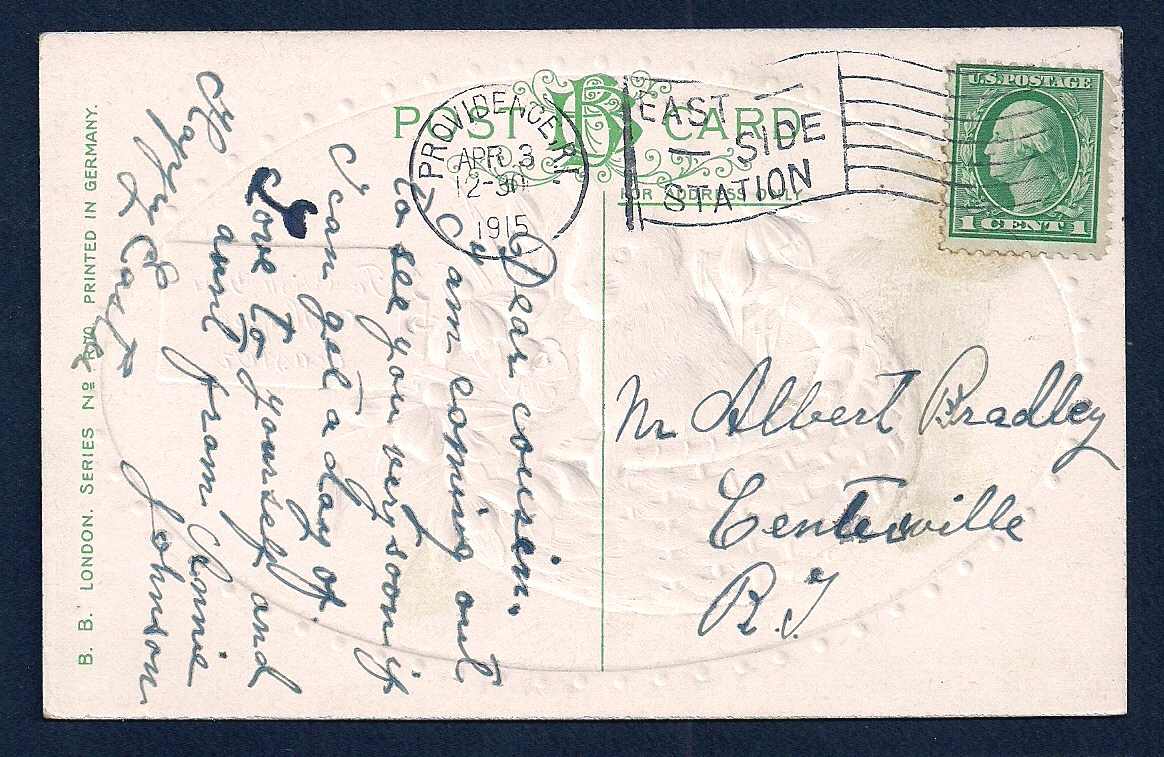 POST CARD
FOR ADDRESS ONLY
PROVIDENCE, R.I.
APR 3
12-30
1915
EAST
SIDE
STATION
U.S. POSTAGE
1 CENT 1
Dear cousin.
I am coming out
to see you very soon if
I can get a day of.
Love to yourself and
aunt from Annie
Johnson
Happy
Easter
Mr Albert Bradley
Centerville
R.I
B. B. LONDON. SERIES No PRINTED IN GERMANY.